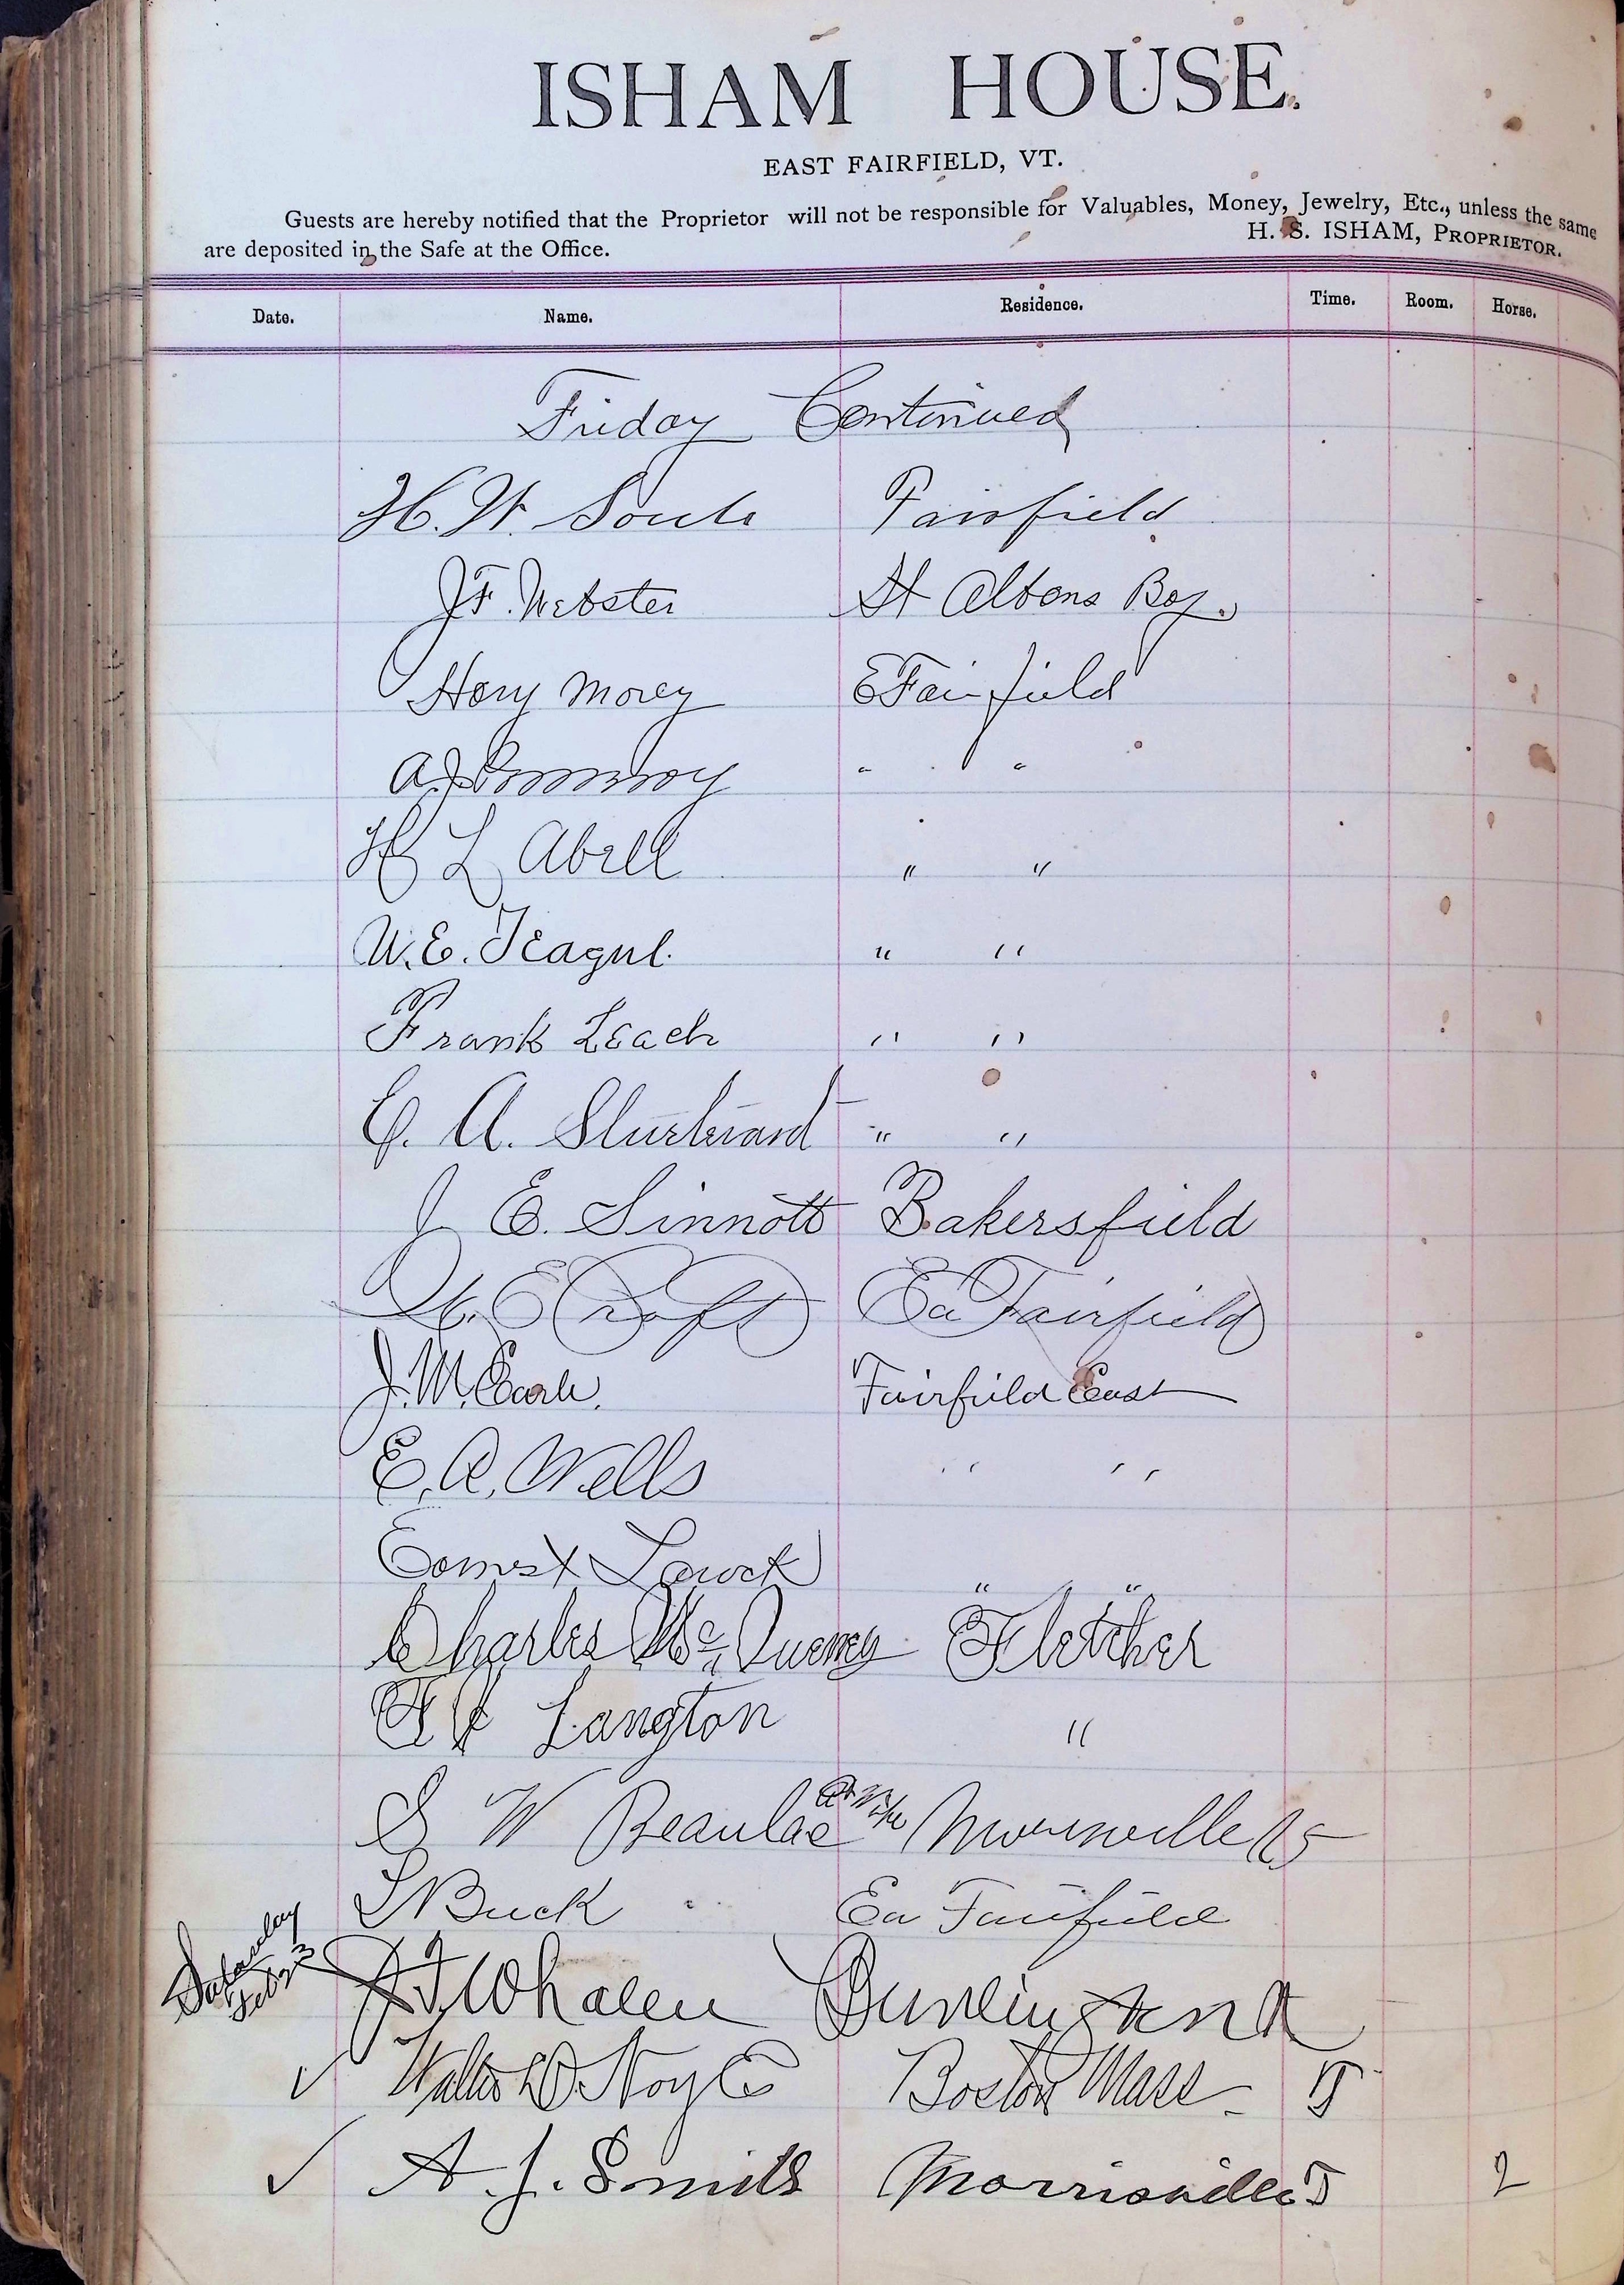 ISHAM HOUSE.
EAST FAIRFIELD, VT.
Guests are hereby notified that the Proprietor will not be responsible for Valuables, Money, Jewelry, Etc., unless the same
are deposited in the Safe at the Office.
H. S. ISHAM, PROPRIETOR.
Date. Name. Residence. Time. Room. Horse.
Friday Continued
H. W. Soule Fairfield
J F. Webster St Albans Bay.
Morey E Fairfield
A J Pommroy " "
H L Abell " "
W. E. Teague. " "
Frank Leach " "
E. A. Sturtevant " "
J E. Sinnott Bakersfield
E Croft Ea Fairfield
J. M. Earle. Fairfield East
E. A. Wells " "
Ernest " "
Charles Mc Queney Fletcher
Langton "
S W Beaulac
Buck Ea Fairfield
Saturday
Feb 23
J. F. Whalen Burlington
✓ Walter D. Noyes Boston Mass - T
✓ A. J. Smith Morrisville T 2